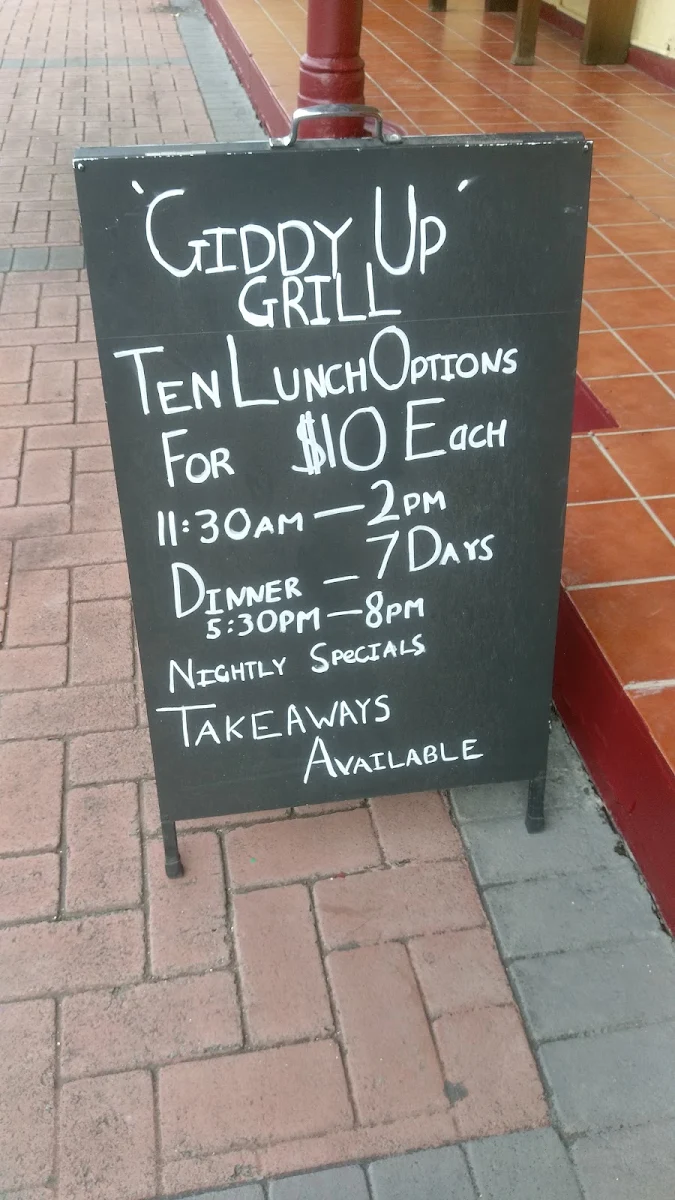 'GIDDY UP'
GRILL
TEN LUNCH OPTIONS
FOR $10 EACH
11:30AM — 2PM
7 DAYS
DINNER —
5:30PM — 8PM
NIGHTLY SPECIALS
TAKEAWAYS
AVAILABLE